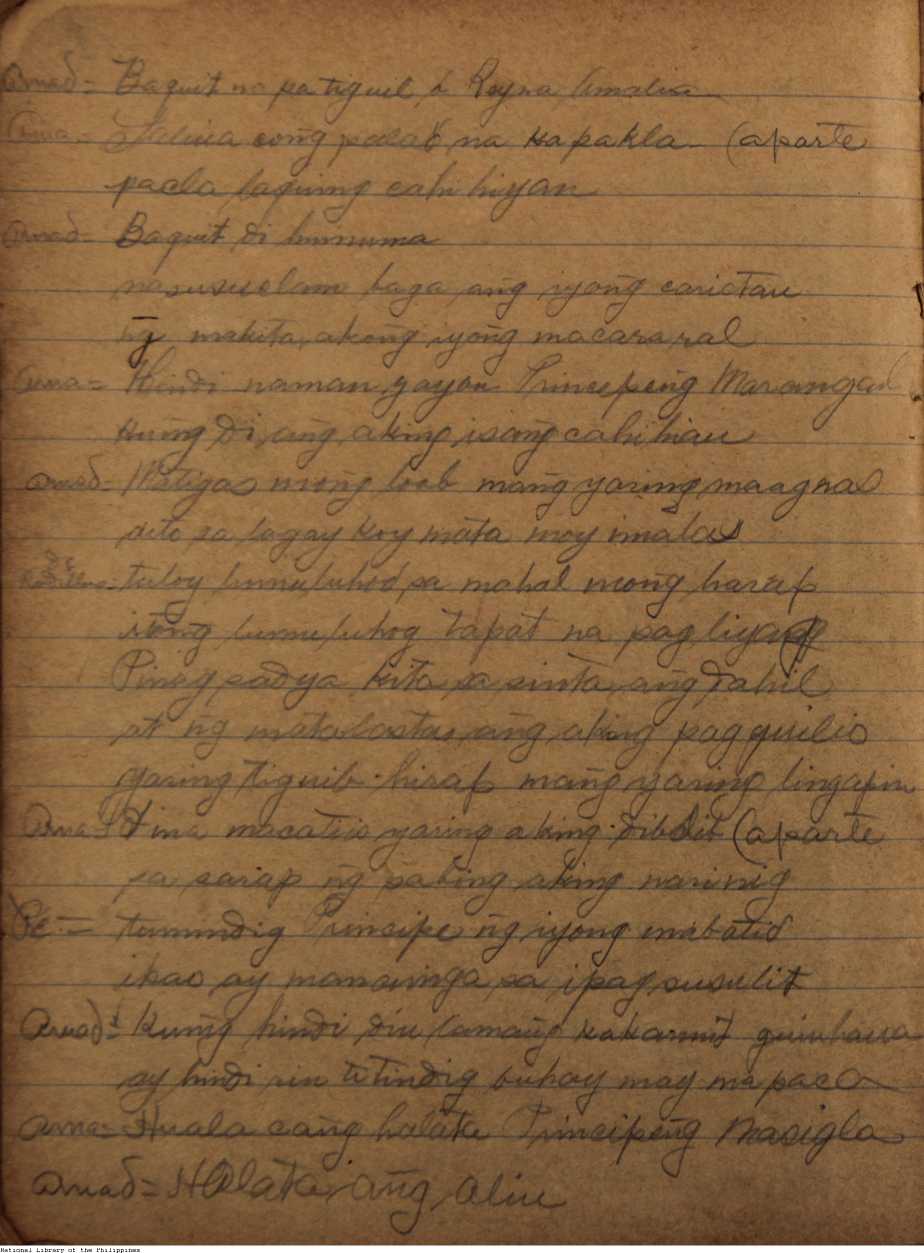 Amad- Baquit na patiguil o Reyna Amalia
Ama- cong palad na kapakla (aparte
pacla laguing cahihiyan
Amad- Baquit di humuma
nasusuclam baga ang iyong carictan
ng makita akong iyong macararal
Ama= Hindi naman gayon Principeng Marangal
kung di ang aking isang cahihian
Amad- Matigas mong loob mang yaring maagnas
dito sa lagay koy mata moy imalas
tuloy lumuluhod sa mahal mong harap
itong lumuluhog tapat na pagliyag
Pinagsadya kita sa sinta ang dahil
at ng matalastas ang aking pag guilio
yaring tiguib hirap mang yaring lingapin
Ama= Dina macatiis yaring aking dibdib (aparte
sa sarap ng sabing aking narinig
Pe= tumindig Principe ng iyong mabatid
ikao ay manainga sa ipagsusulit
Amad= Kung hindi din lamang kakamit guinhawa
ay hindi rin titindig buhay may mapacla
Ama= Huala cang halata Principeng Masigla
Amad= Halata ang aliu
National Library of the Philippines